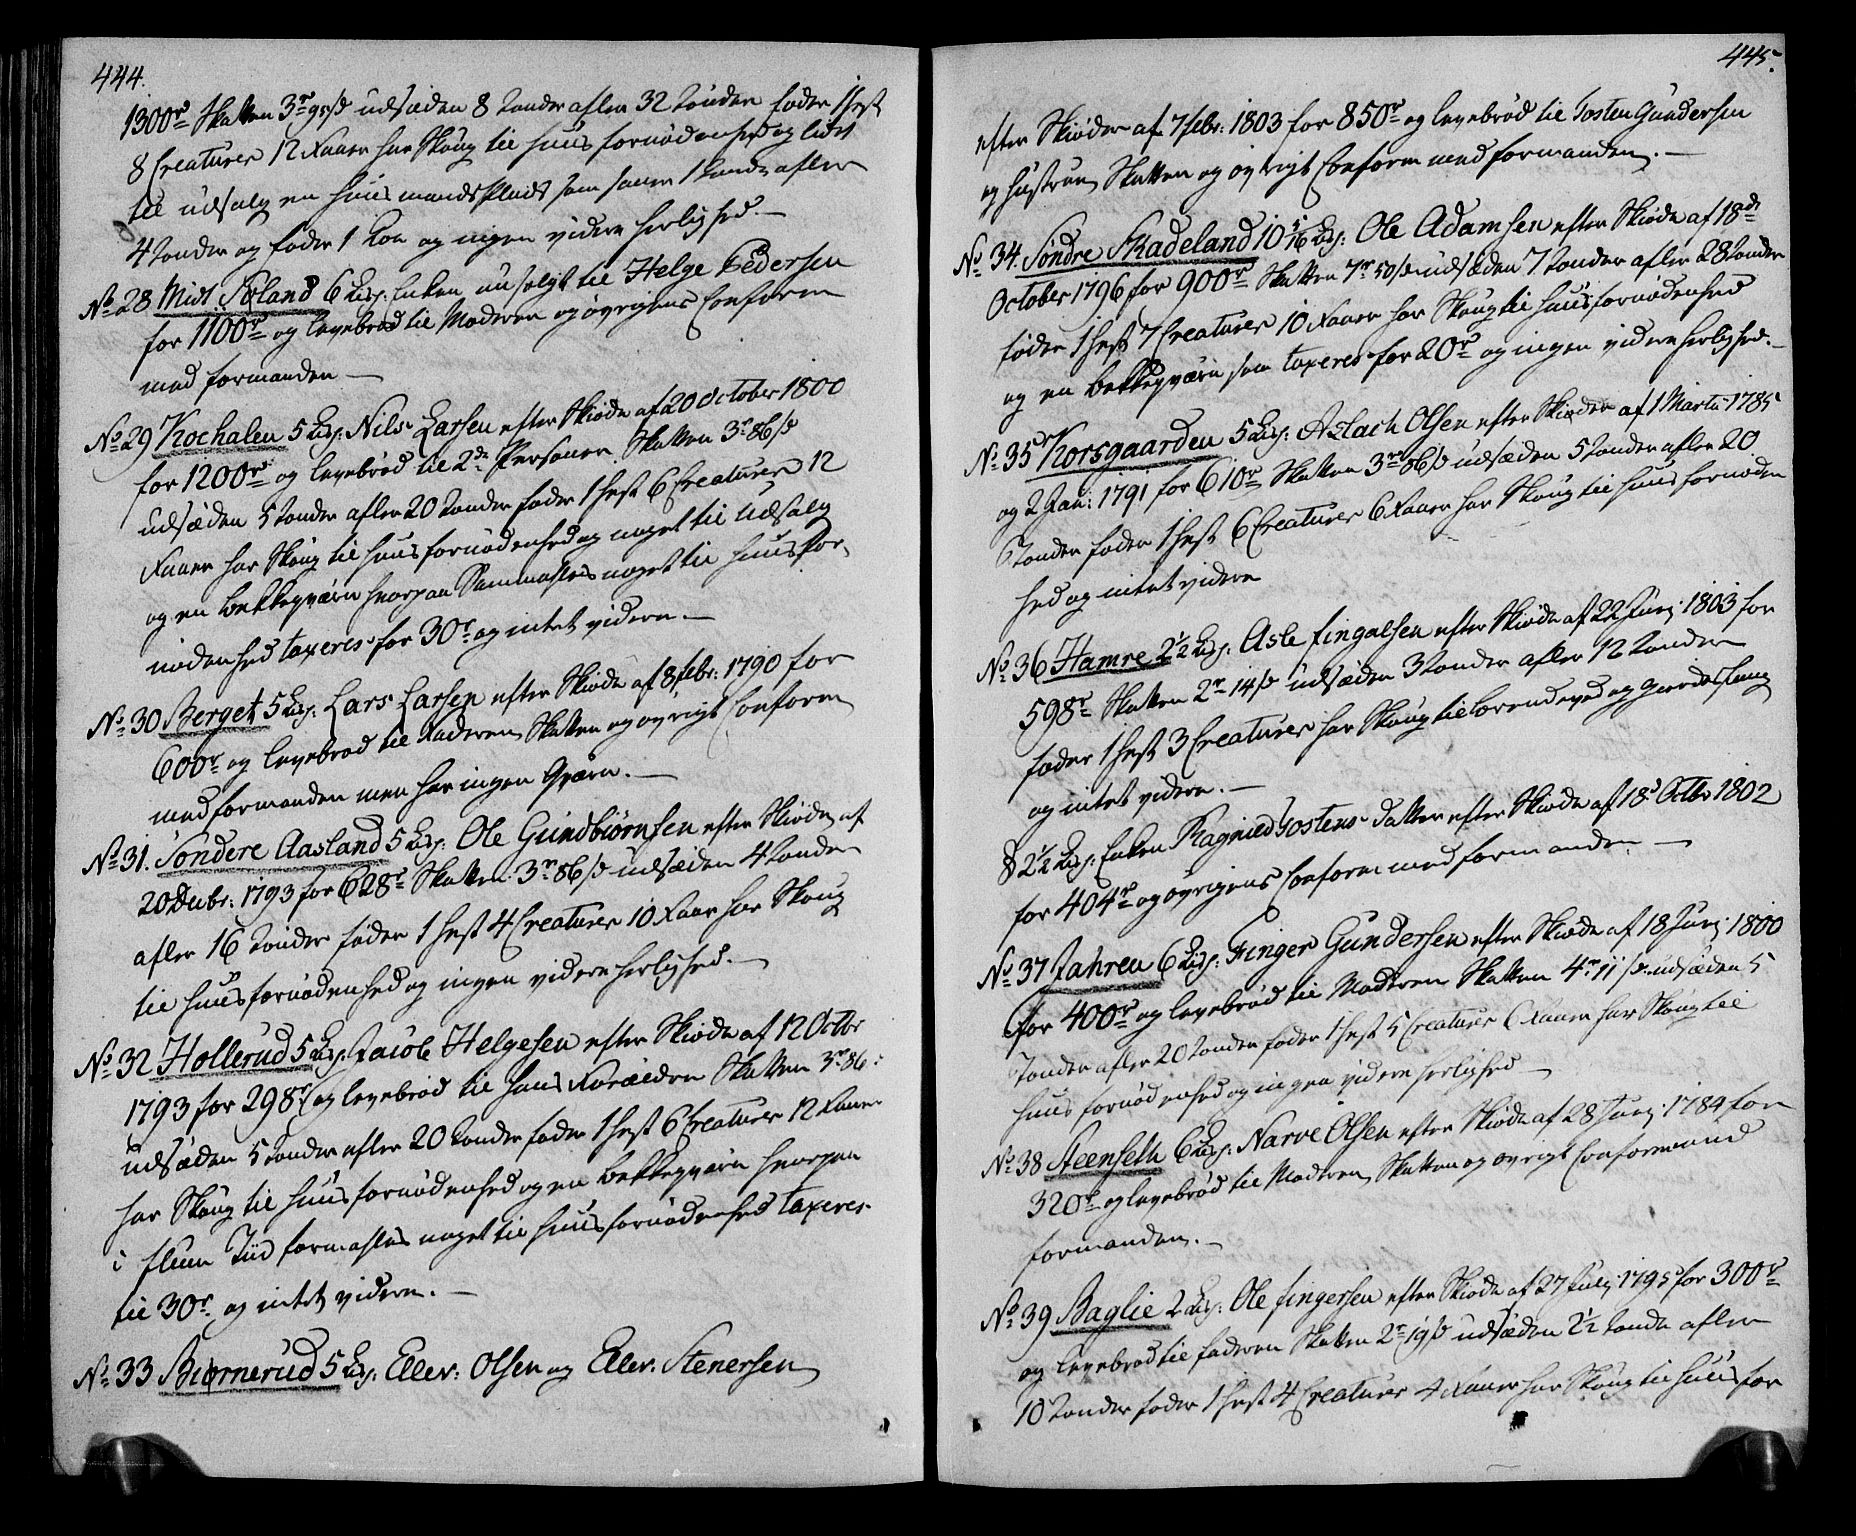 444.
1300r Skatten 3r 98/s udsæden 8 tønder afler 32 tønder føder 1 hest
8 Creaturer 12 Faarer har Skoug til huusfornødenhed og lidet
til udsalg en huusmandsplads som saaer 1 tønde afler
4 tønder og føder 1 Koe og ingen videre herlighed.
No 28 Midt Søland 6 Lisp: Enken nu solgt til Helge Pedersen
for 1100r og levebrød til Moderen og øvrigens Conform
med formanden
No 29 Kochalen 5 Lisp: Nils Larsen efter Skiøde af 20 October 1800
for 1200r og levebrød til 2de Personer Skatten 3r 86/s
udsæden 5 tønder afler 20 tønder føder 1 hest 6 Creaturer 12
Faarer har Skoug til huusfornødenhed og noget til udsalg
og en bekkeqværn hvorpaa Sammahles noget til huusfor-
nødenhed taxeres for 30r og intet videre.
No 30 Berget 5 Lisp: Lars Larsen efter Skiøde af 8 febr: 1790 for
600r og levebrød til Faderen, Skatten og øvrigt Conform
med formanden men har ingen Qværn.
No 31. Søndere Aasland 5 Lisp: Ole Gundbiørnsen efter Skiøde af
20 Decbr: 1793 for 628r Skatten 3r 86/s udsæden 4 tønder
afler 16 tønder føder 1 hest 4 Creaturer 10 Faar har Skoug
til huusfornødenhed og ingen videre herlighed.
No 32 Hollerud 5 Lisp: Jacob Helgesen efter Skiøde af 12 Octbr
1793 for 298r og levebrød til hans Forældre Skatten 3r 86:
udsæden 5 tønder afler 20 tønder føder 1 hest 6 Creaturer 12 Faarer
har Skoug til huusfornødenhed og en bekkeqværn hvorpaa
i flum Tiid formahles noget til huusfornødenhed taxeres
til 30r og intet videre.
No 33 Biørnerud 5 Lisp: Ellev: Olsen og Ellev: Stenersen
445.
efter Skiøder af 7 febr: 1803 for 850r og levebrød til Tosten Gundersen
og hustrue, Skatten og øvrigt Conform med formanden.
No 34. Søndre Skadeland 10 5/16 Lisp: Ole Adamsen efter Skiøde af 18de
October 1796 for 900r Skatten 7r 50/s udsæden 7 tønder afler 28 tønder
føder 1 hest 7 Creaturer 10 Faarer har Skoug til huusfornødenhed
og en bekkeqværn som taxeres for 20r og ingen videre herlighed.
No 35 Korsgaarden 5 Lisp: Aslach Olsen efter Skiøder af 1 Marts 1785
og 2 Jan: 1791 for 610r Skatten 3r 86/s udsæden 5 tønder afler 20
Tønder føder 1 hest 6 Creaturer 6 Faarer har Skoug til huusfornøden
hed og intet videre
No 36 Hamre 2½ Lisp: Asle Fingalsen efter Skiøde af 22 Junj: 1803 for
598r Skatten 2r 14/s udsæden 3 tønder afler 12 tønder
føder 1 hest 3 Creaturer har Skoug til brendeved og gierdefang
og intet videre.
§ 2½ Lisp: Enken Ragnild Tostens datter efter Skiøde af 18de Octbr 1802
for 404r og øvrigens Conform med formanden
No 37 Jahren 6 Lisp: Finger Gundersen efter Skiøde af 18 Junj: 1800
for 400r og levebrød til Moderen Skatten 4r 11/s udsæden 5
Tønder afler 20 tønder føder 1 hest 5 Creaturer 6 Faarer har Skoug til
huusfornødenhed og ingen videre herlighed
No 38 Steenseth 6 Lisp: Narve Olsen efter Skiøde af 28 Junj: 1784 for
320r og levebrød til Moderen, Skatten og øvrigt Conform med
formanden.
No 39 Baglie 2 Lisp: Ole Fingersen efter Skiøde af 27 Julj: 1795 for 300r
og levebrød til faderen Skatten 2r 19/s udsæden 2½ tønde afler
10 tønder føder 1 hest 4 Creaturer 4 Faarer har Skoug til huusfor